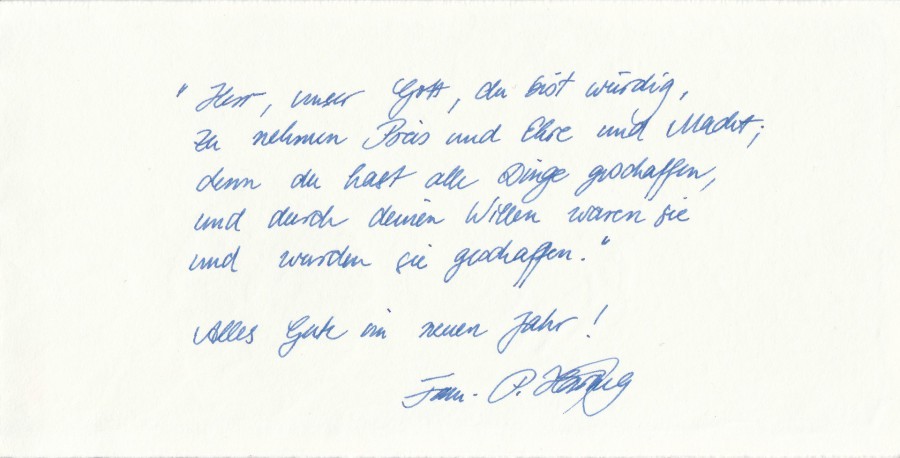 "Herr, unser Gott, du bist würdig,
zu nehmen Preis und Ehre und Macht;
denn du hast alle Dinge geschaffen,
und durch deinen Willen waren sie
und wurden sie geschaffen."
Alles Gute im neuen Jahr!
Fam. P.